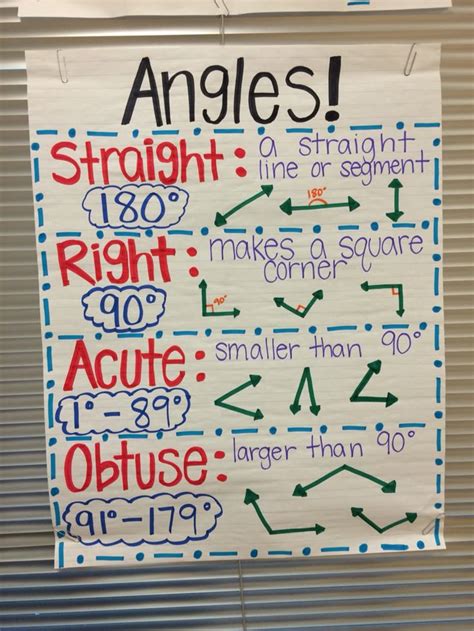 Angles!
Straight: a straight
line or segment
180°
180°
Right: makes a square
corner
90°
90°
Acute: smaller than 90°
1°-89°
Obtuse: larger than 90°
91°-179°